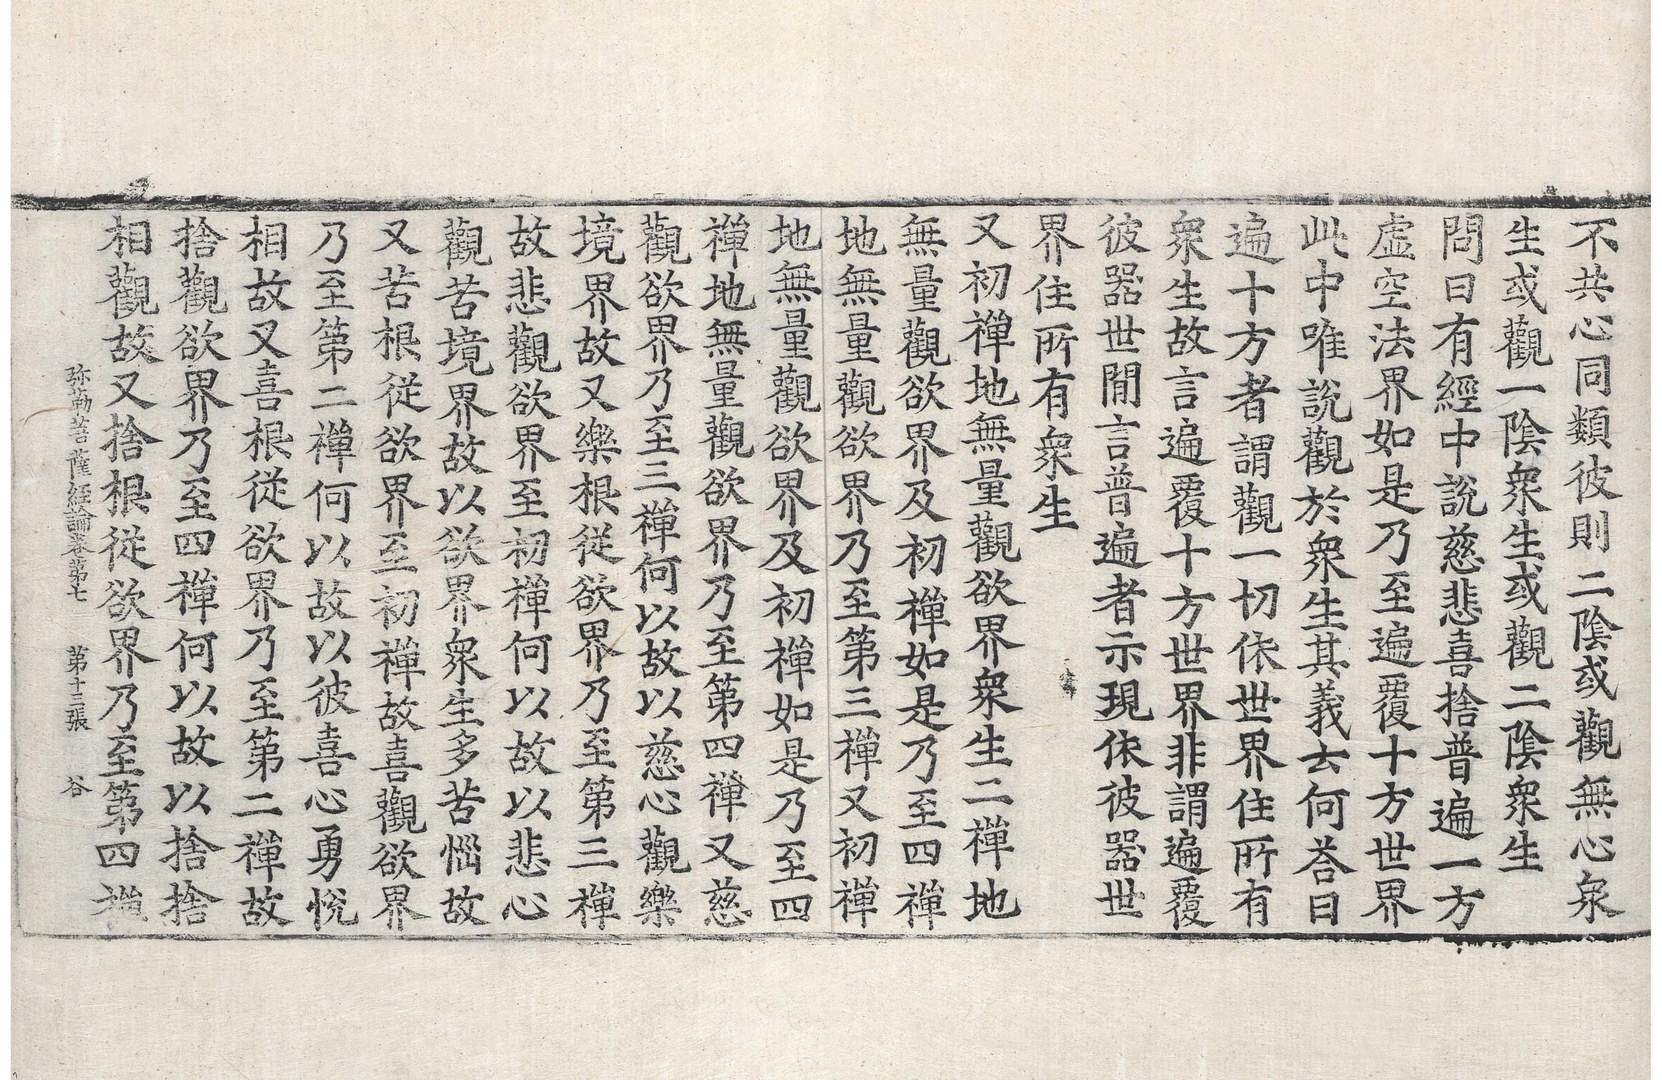 不共心同類彼則二陰或觀無心衆
生或觀一陰衆生或觀二陰衆生
問曰有經中說慈悲喜捨普遍一方
虛空法界如是乃至遍覆十方世界
此中唯說觀於衆生其義云何荅曰
遍十方者謂觀一切依世界住所有
衆生故言遍覆十方世界非謂遍覆
彼器世間言普遍者示現依彼器世
界住所有衆生
又初禪地無量觀欲界衆生二禪地
無量觀欲界及初禪如是乃至四禪
地無量觀欲界乃至第三禪又初禪
地無量觀欲界及初禪如是乃至四
禪地無量觀欲界乃至第四禪又慈
觀欲界乃至三禪何以故以慈心觀樂
境界故又樂根從欲界乃至第三禪
故悲觀欲界至初禪何以故以悲心
觀苦境界故以欲界衆生多苦惱故
又苦根從欲界至初禪故喜觀欲界
乃至第二禪何以故以彼喜心勇悅
相故又喜根從欲界乃至第二禪故
捨觀欲界乃至四禪何以故以捨捨
相觀故又捨根從欲界乃至第四禪
弥勒菩薩經論卷第七 第十三張 谷